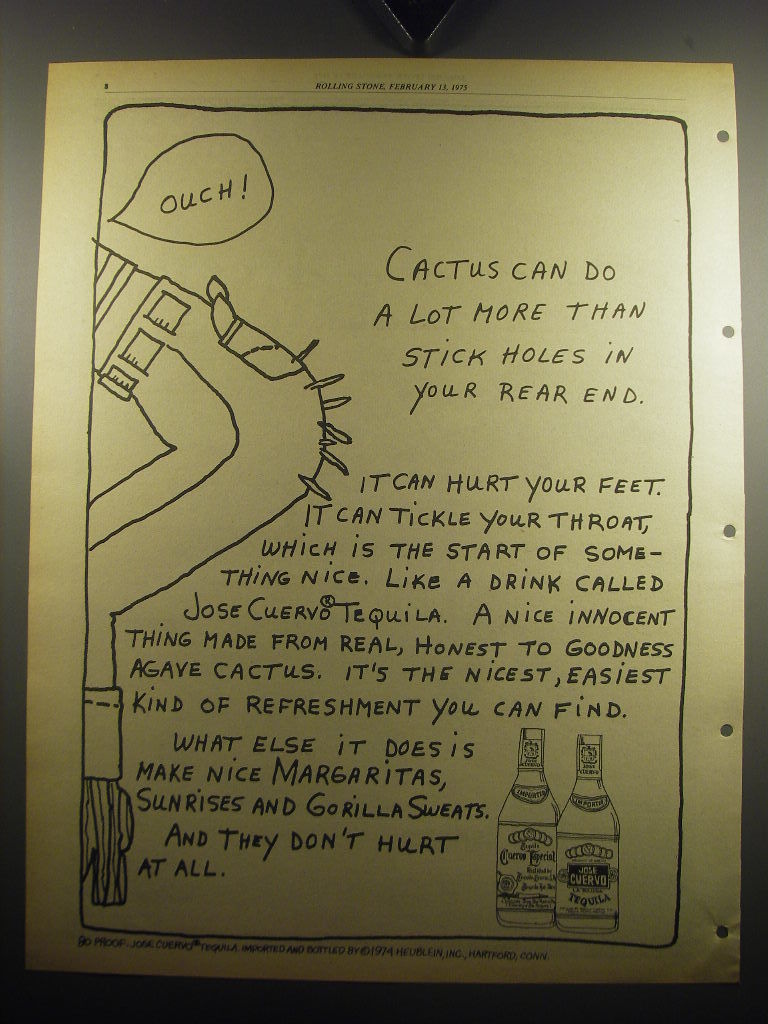 8
ROLLING STONE, FEBRUARY 13, 1975
OUCH!
CACTUS CAN DO
A LOT MORE THAN
STICK HOLES IN
YOUR REAR END.
IT CAN HURT YOUR FEET.
IT CAN TICKLE YOUR THROAT,
WHICH IS THE START OF SOME-
THING NICE. LIKE A DRINK CALLED
JOSE CUERVO® TEQUILA. A NICE INNOCENT
THING MADE FROM REAL, HONEST TO GOODNESS
AGAVE CACTUS. IT'S THE NICEST, EASIEST
KIND OF REFRESHMENT YOU CAN FIND.
WHAT ELSE IT DOES IS
MAKE NICE MARGARITAS,
SUNRISES AND GORILLA SWEATS.
AND THEY DON'T HURT
AT ALL.
JOSE
CUERVO
IMPORTED
Tequila
Cuervo Especial
JOSE
CUERVO
IMPORTED
JOSE
CUERVO
TEQUILA
80 PROOF. JOSE CUERVO® TEQUILA. IMPORTED AND BOTTLED BY © 1974 HEUBLEIN, INC., HARTFORD, CONN.